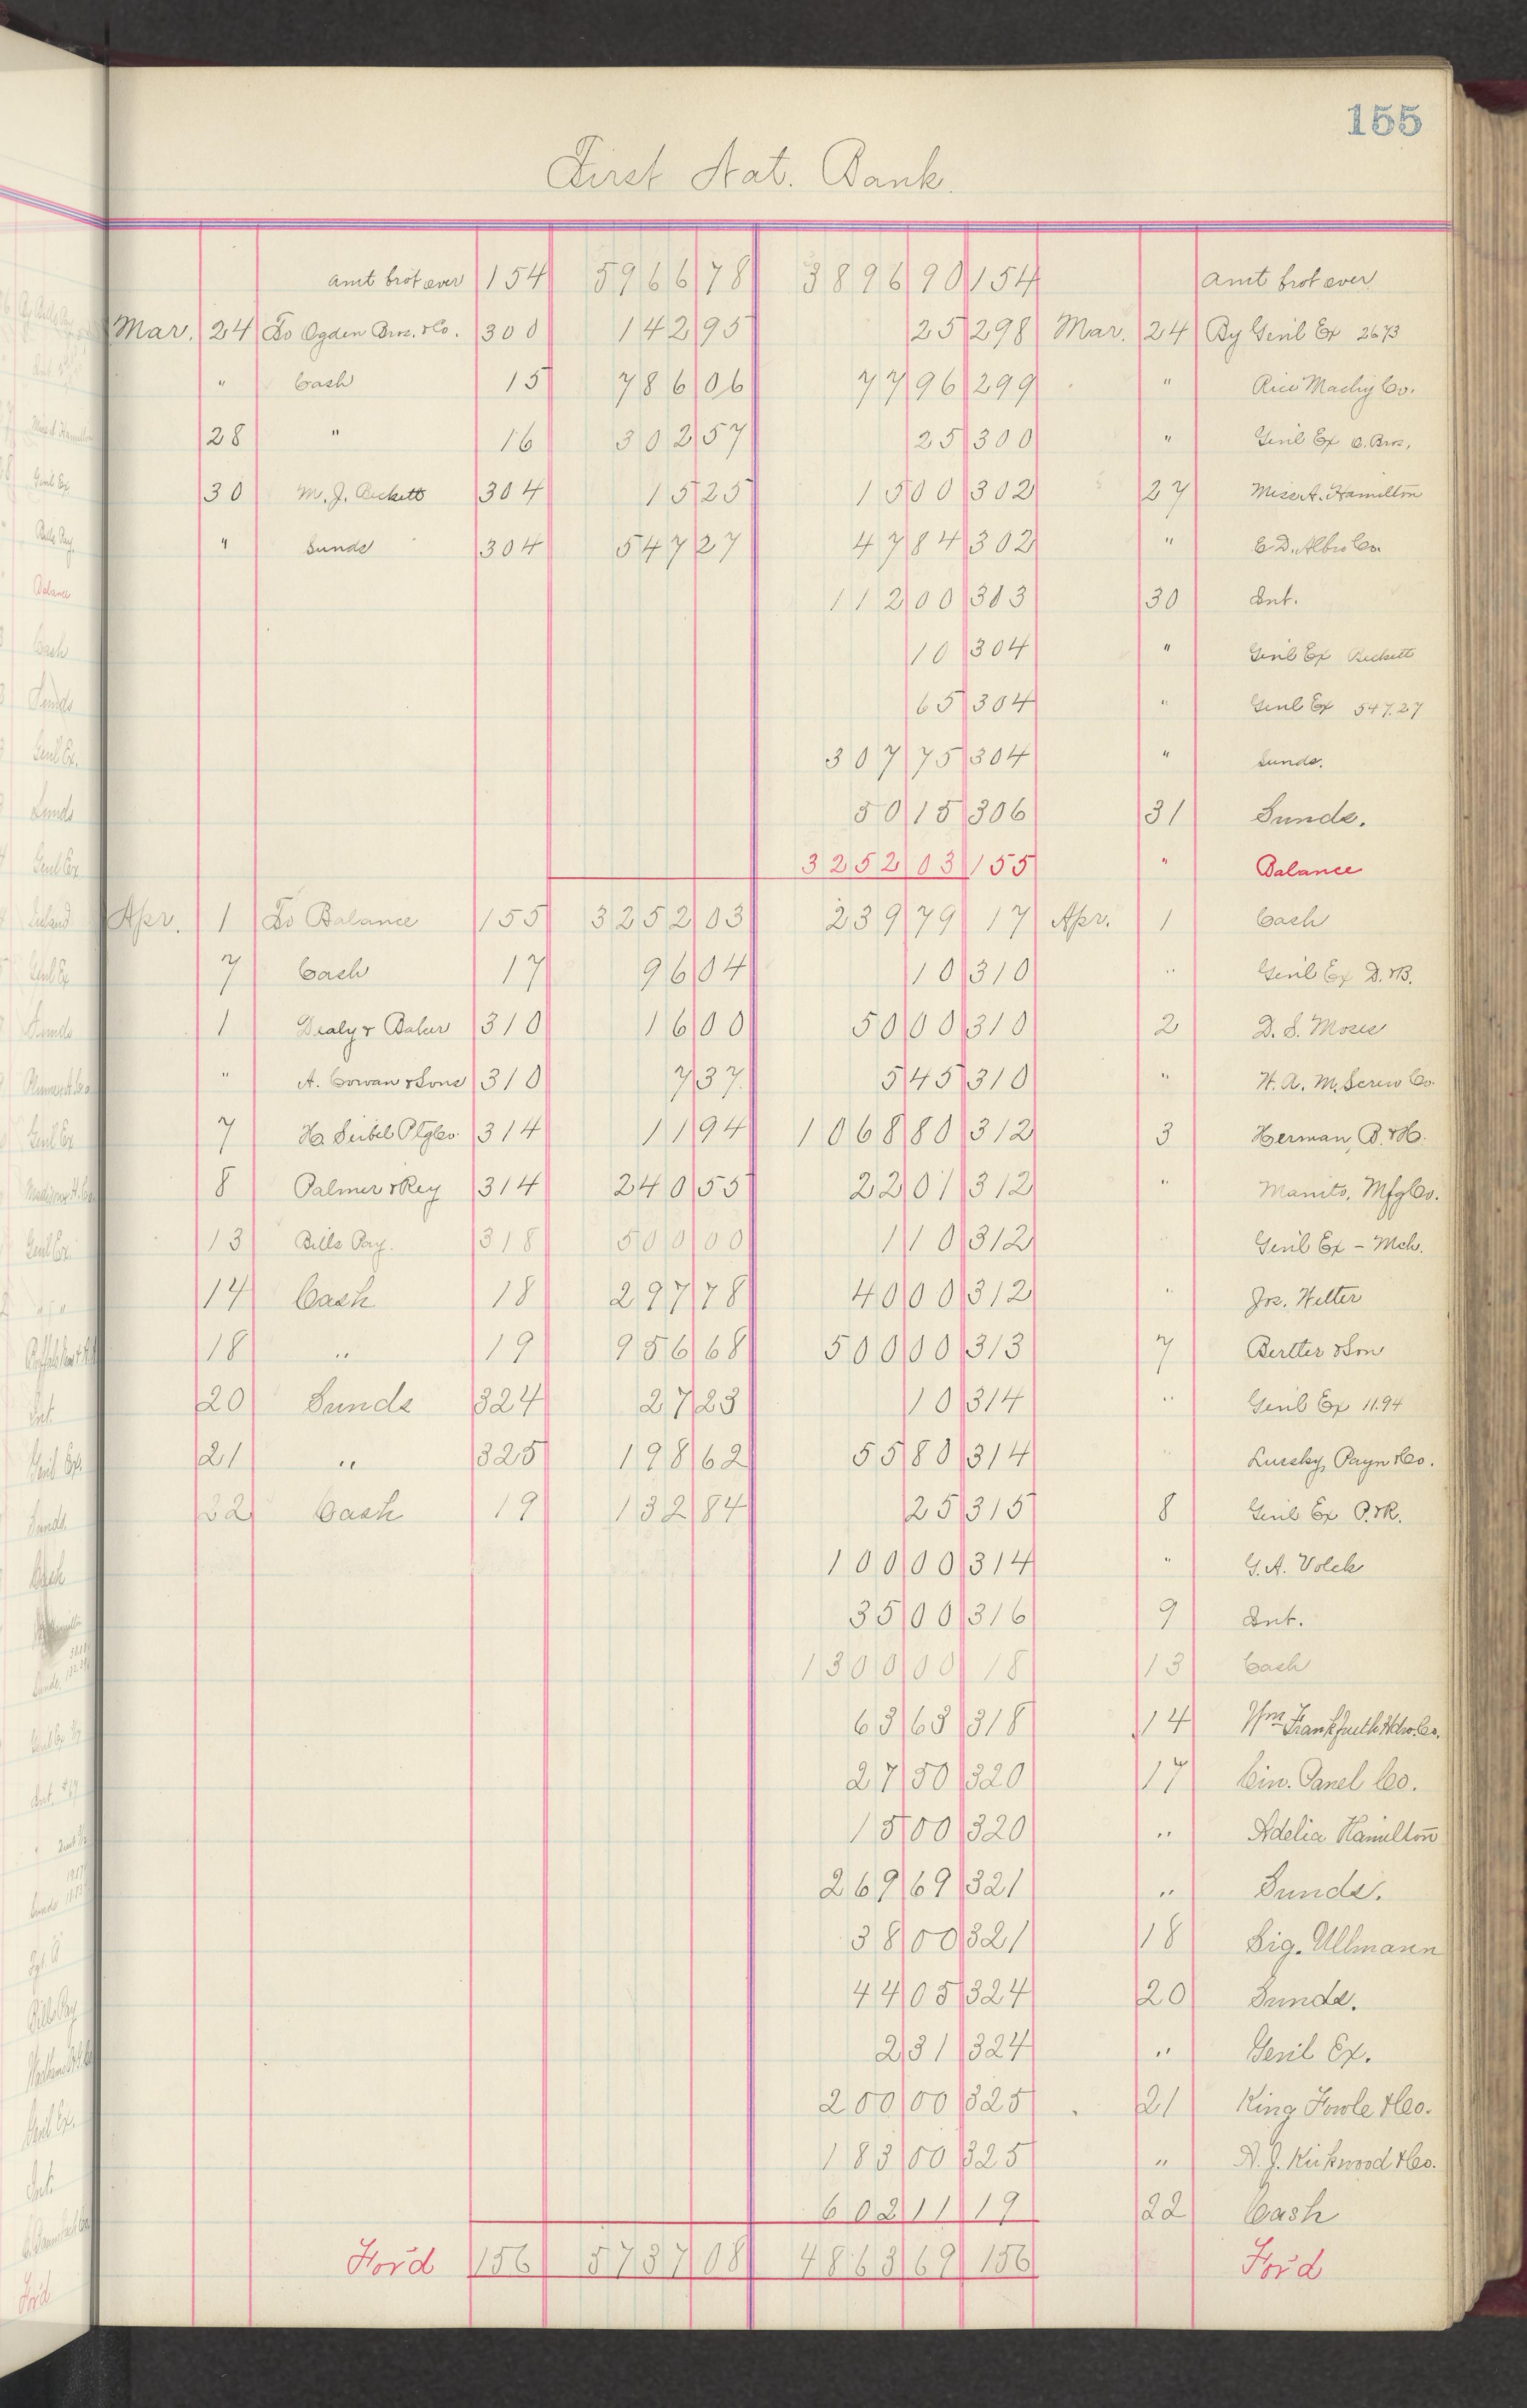 155
First Nat. Bank.
amt brot over 154 5966 78 3896 90 154 amt brot over
Mar. 24 To Ogden Bros. & Co. 300 142 95 25 298 Mar. 24 By Genl Ex 2673
" Cash 15 786 06 77 96 299 " Rice Machy Co.
28 " 16 302 57 25 300 " Genl Ex O. Bros.
30 M. J. Beckett 304 15 25 15 00 302 27 Miss A. Hamilton
" Sunds 304 547 27 47 84 302 " E. D. Albro Co.
112 00 303 30 Int.
10 304 " Genl Ex Beckett
65 304 " Genl Ex 547.27
307 75 304 " Sunds.
50 15 306 31 Sunds.
3252 03 155 " Balance
Apr. 1 To Balance 155 3252 03 239 79 17 Apr. 1 Cash
7 Cash 17 96 04 10 310 " Genl Ex D. & B.
1 Dealy & Baker 310 16 00 50 00 310 2 D. S. Moses
" A. Cowan & Sons 310 7 37 5 45 310 " H. A. M. Screw Co.
7 H. Seibel Ptg Co. 314 11 94 1068 80 312 3 Herman, B. & H.
8 Palmer & Rey 314 240 55 22 01 312 " Manito. Mfg Co.
13 Bills Pay. 318 500 00 1 10 312 Genl Ex - Mch.
14 Cash 18 297 78 40 00 312 " Jos. Hetter
18 " 19 956 68 500 00 313 7 Bertter & Son
20 Sunds 324 27 23 10 314 " Genl Ex 11.94
21 " 325 198 62 55 80 314 " Lussky, Payn & Co.
22 Cash 19 132 84 25 315 8 Genl Ex P. & R.
100 00 314 " G. A. Volck
35 00 316 9 Int.
1300 00 18 13 Cash
63 63 318 14 Wm Frankfurth Hdw. Co.
27 50 320 17 Cin. Panel Co.
15 00 320 " Adelia Hamilton
269 69 321 " Sunds.
38 00 321 18 Sig. Ullmann
44 05 324 20 Sunds.
2 31 324 " Genl Ex.
200 00 325 21 King Fowle & Co.
183 00 325 " A. J. Kirkwood & Co.
602 11 19 22 Cash
For'd 156 5737 08 4863 69 156 For'd